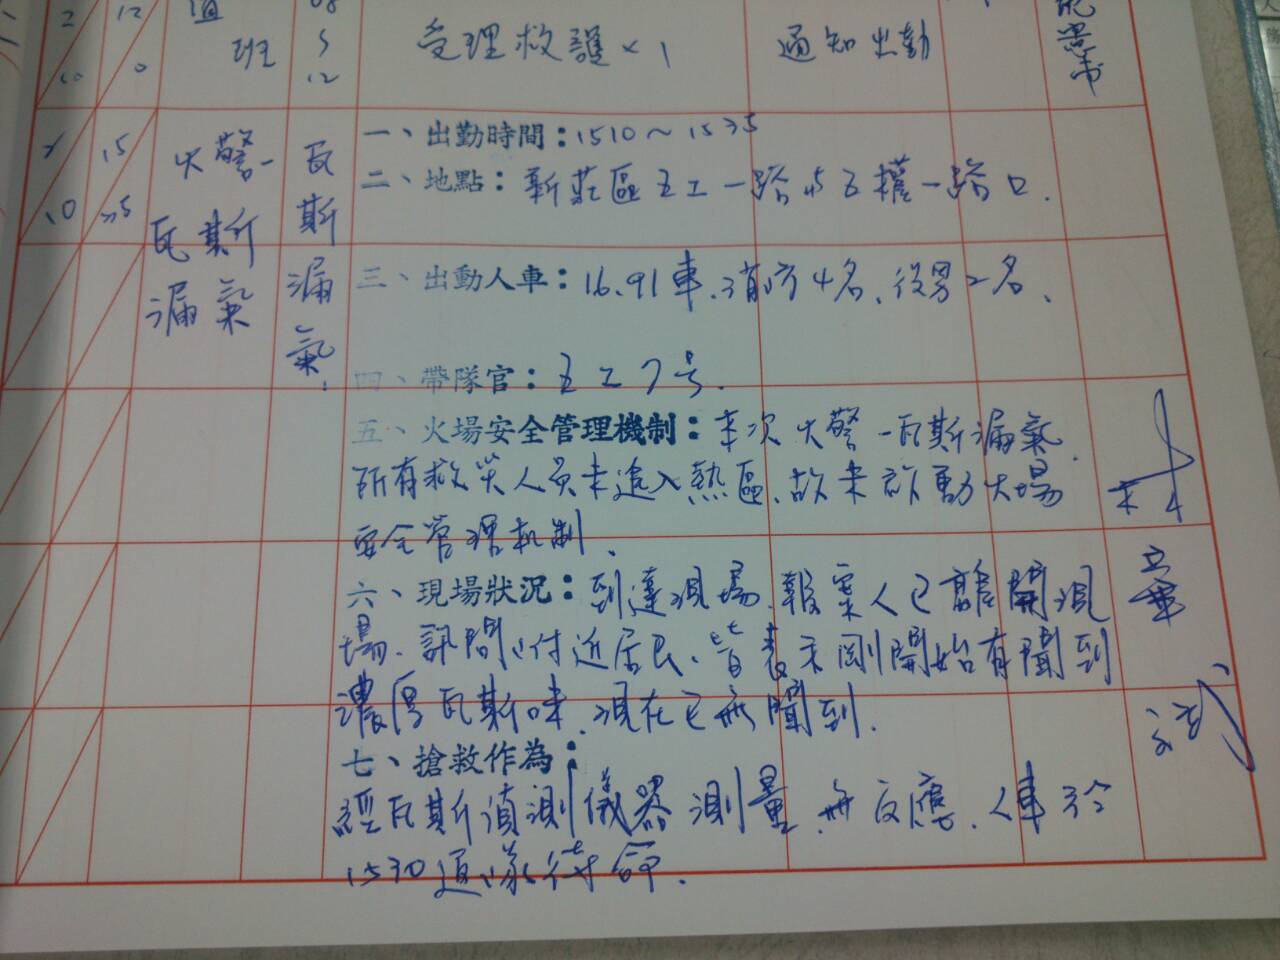 2 12 值 08
10 0 班 ~ 12 受理救護×1 通知出勤
15 火警— 瓦斯漏氣
10 35 瓦斯漏氣
一、出勤時間：1510～1535
二、地點：新莊區五工一路與五權一路口.
三、出動人車：16.91車、消防4名、役男2名、
四、帶隊官：五工7号.
五、火場安全管理機制：本次火警—瓦斯漏氣、
所有救災人員未進入熱區、故未啟動火場
安全管理机制、
六、現場狀況：到達現場、報案人已離開現
場、訊問附近居民、皆表示剛開始有聞到
濃厚瓦斯味、現在已無聞到.
七、搶救作為：
經瓦斯偵測儀器測量、無反應、人車於
1530返隊待命.